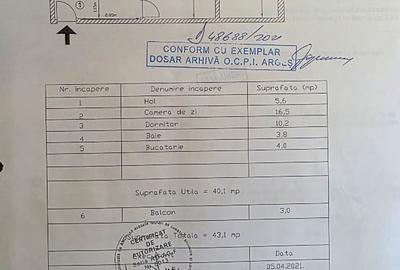 1
48688/2021
CONFORM CU EXEMPLAR
DOSAR ARHIVĂ O.C.P.I. ARGEȘ
Nr. încapere Denumire incapere Suprafata (mp)
1 Hol 5,6
2 Camera de zi 16,5
3 Dormitor 10,2
4 Baie 3,8
5 Bucatarie 4,0
Suprafata Utila = 40,1 mp
6 Balcon 3,0
Totala = 43,1 mp
CERTIFICAT
DE
AUTORIZARE
Data
05.04.2021